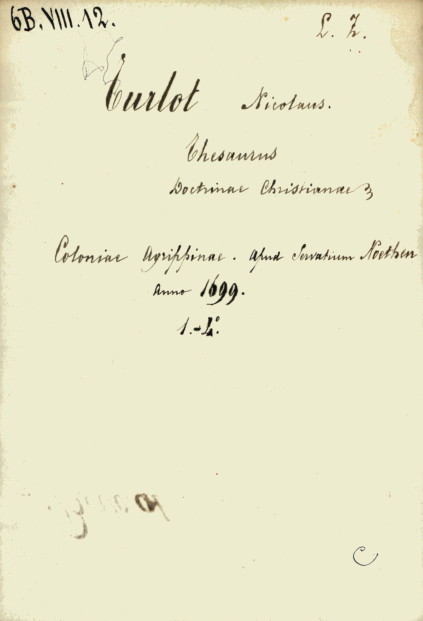 6B.VIII.12.
L. Z.
Turlot Nicolaus.
Thesaurus
Doctrinae Christianae
Coloniae Agrippinae. Apud Servatium Noethen
Anno 1699.
1.-4°.
C